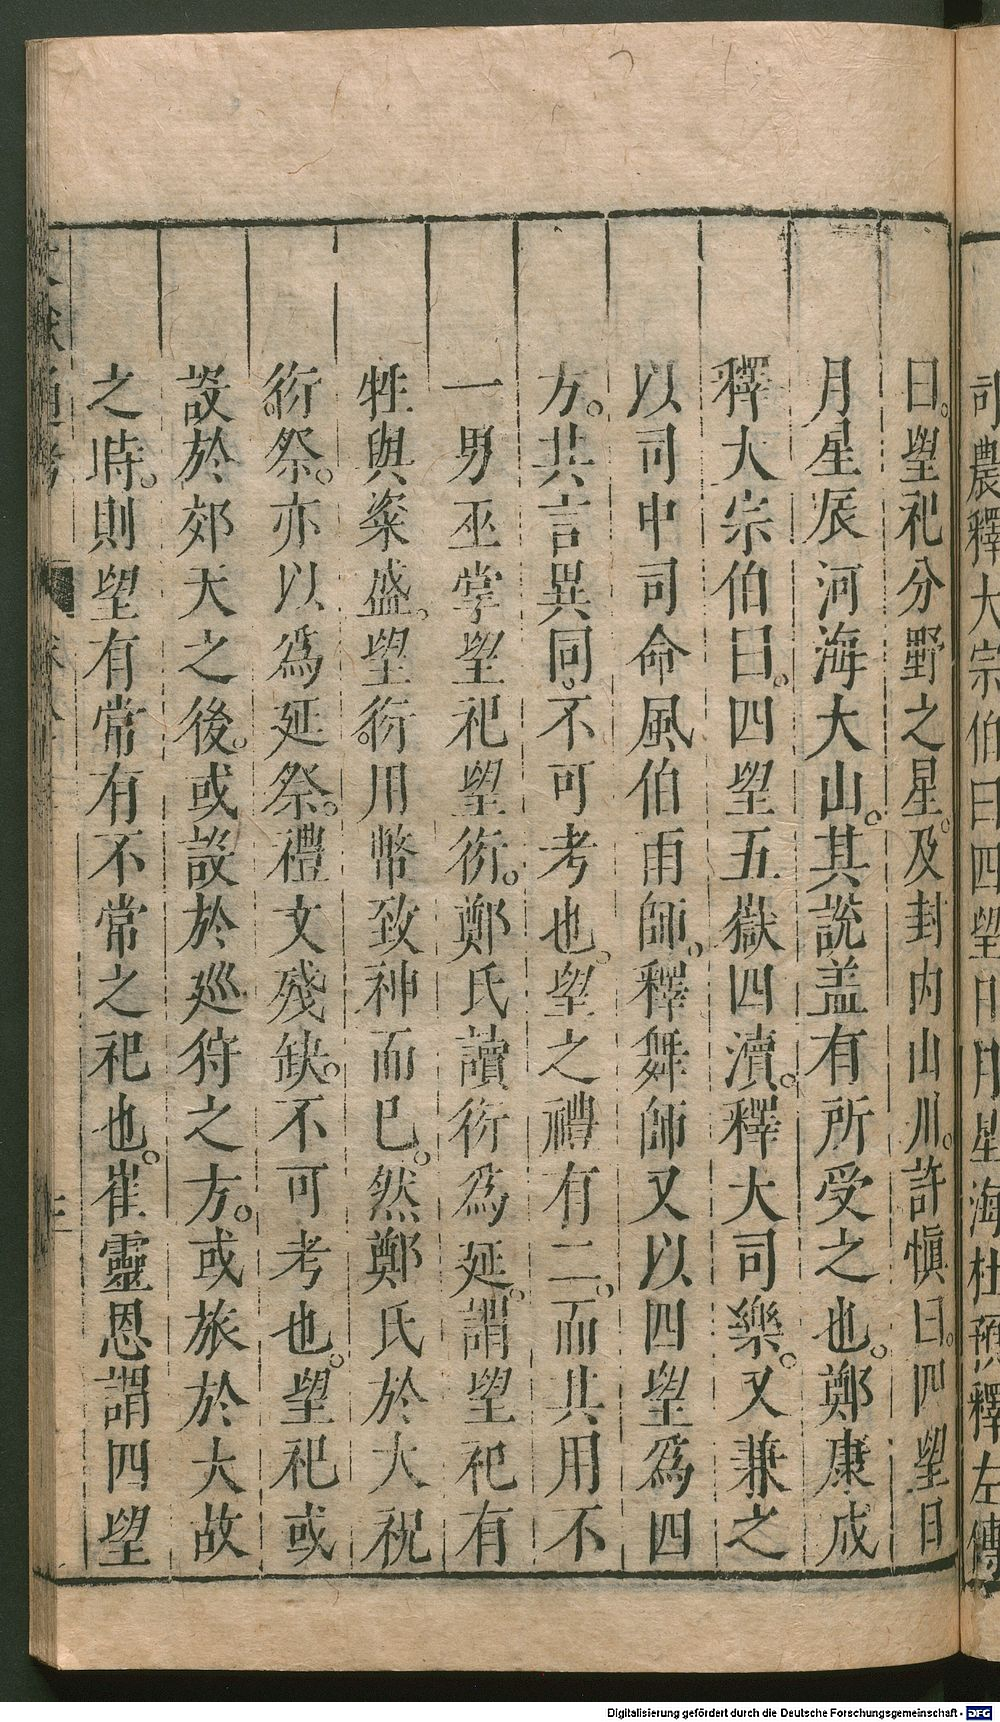 司農釋大宗伯曰四望日月星海杜預釋左傳
曰。望祀分野之星。及封内山川。許慎曰。四望日
月星辰河海大山。其說盖有所受之也。鄭康成
釋大宗伯曰。四望五嶽四瀆。釋大司樂。又兼之
以司中司命風伯雨師。釋舞師又以四望爲四
方。共言異同。不可考也。望之禮有二。而共用不
一男巫掌望祀望衍。鄭氏讀衍爲延。謂望祀有
牲與粢盛。望衍。用幣致神而已。然鄭氏於大祝
衍。祭。亦以爲延祭。禮文殘缺。不可考也。望祀或
設於郊天之後。或設於廵狩之方。或旅於大故
之時。則望有常有不常之祀也。崔靈恩謂四望
文獻通考
Digitalisierung gefördert durch die Deutsche Forschungsgemeinschaft - DFG